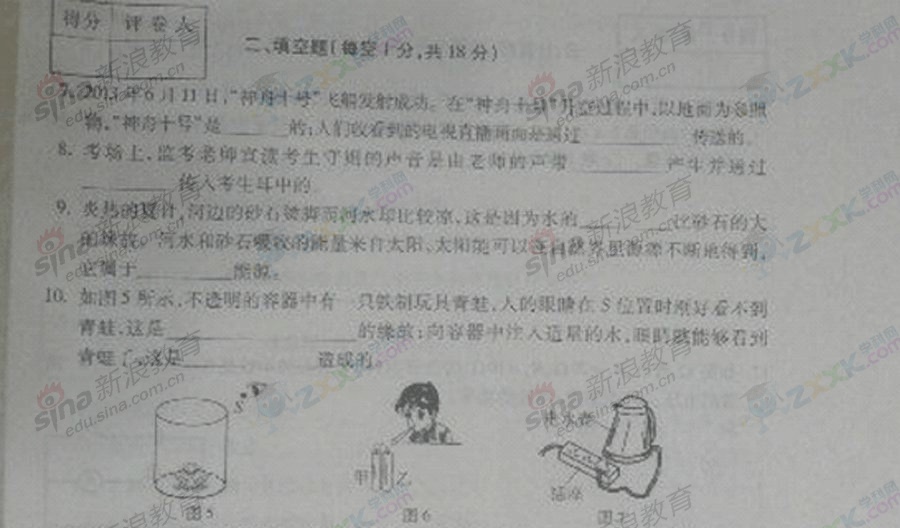 得分 评卷人
二、填空题(每空1分,共18分)
7. 2013年6月11日,"神舟十号"飞船发射成功。在"神舟十号"升空过程中,以地面为参照
物,"神舟十号"是______的;人们收看到的电视直播画面是通过________传送的。
8. 考场上,监考老师宣读考生守则的声音是由老师的声带________产生并通过
________传入考生耳中的。
9. 炎热的夏日,河边的砂石烫脚而河水却比较凉,这是因为水的________比砂石的大
的缘故。河水和砂石吸收的能量来自太阳、太阳能可以在自然界里源源不断地得到,
它属于________能源。
10. 如图5所示,不透明的容器中有一只铁制玩具青蛙,人的眼睛在S位置时刚好看不到
青蛙,这是________________的缘故;向容器中注入适量的水,眼睛就能够看到
青蛙了,这是____________造成的。
S
甲 乙
热水壶
插座
图5 图6 图7
sina新浪教育
edu.sina.com.cn
学科网
ZXXK.com